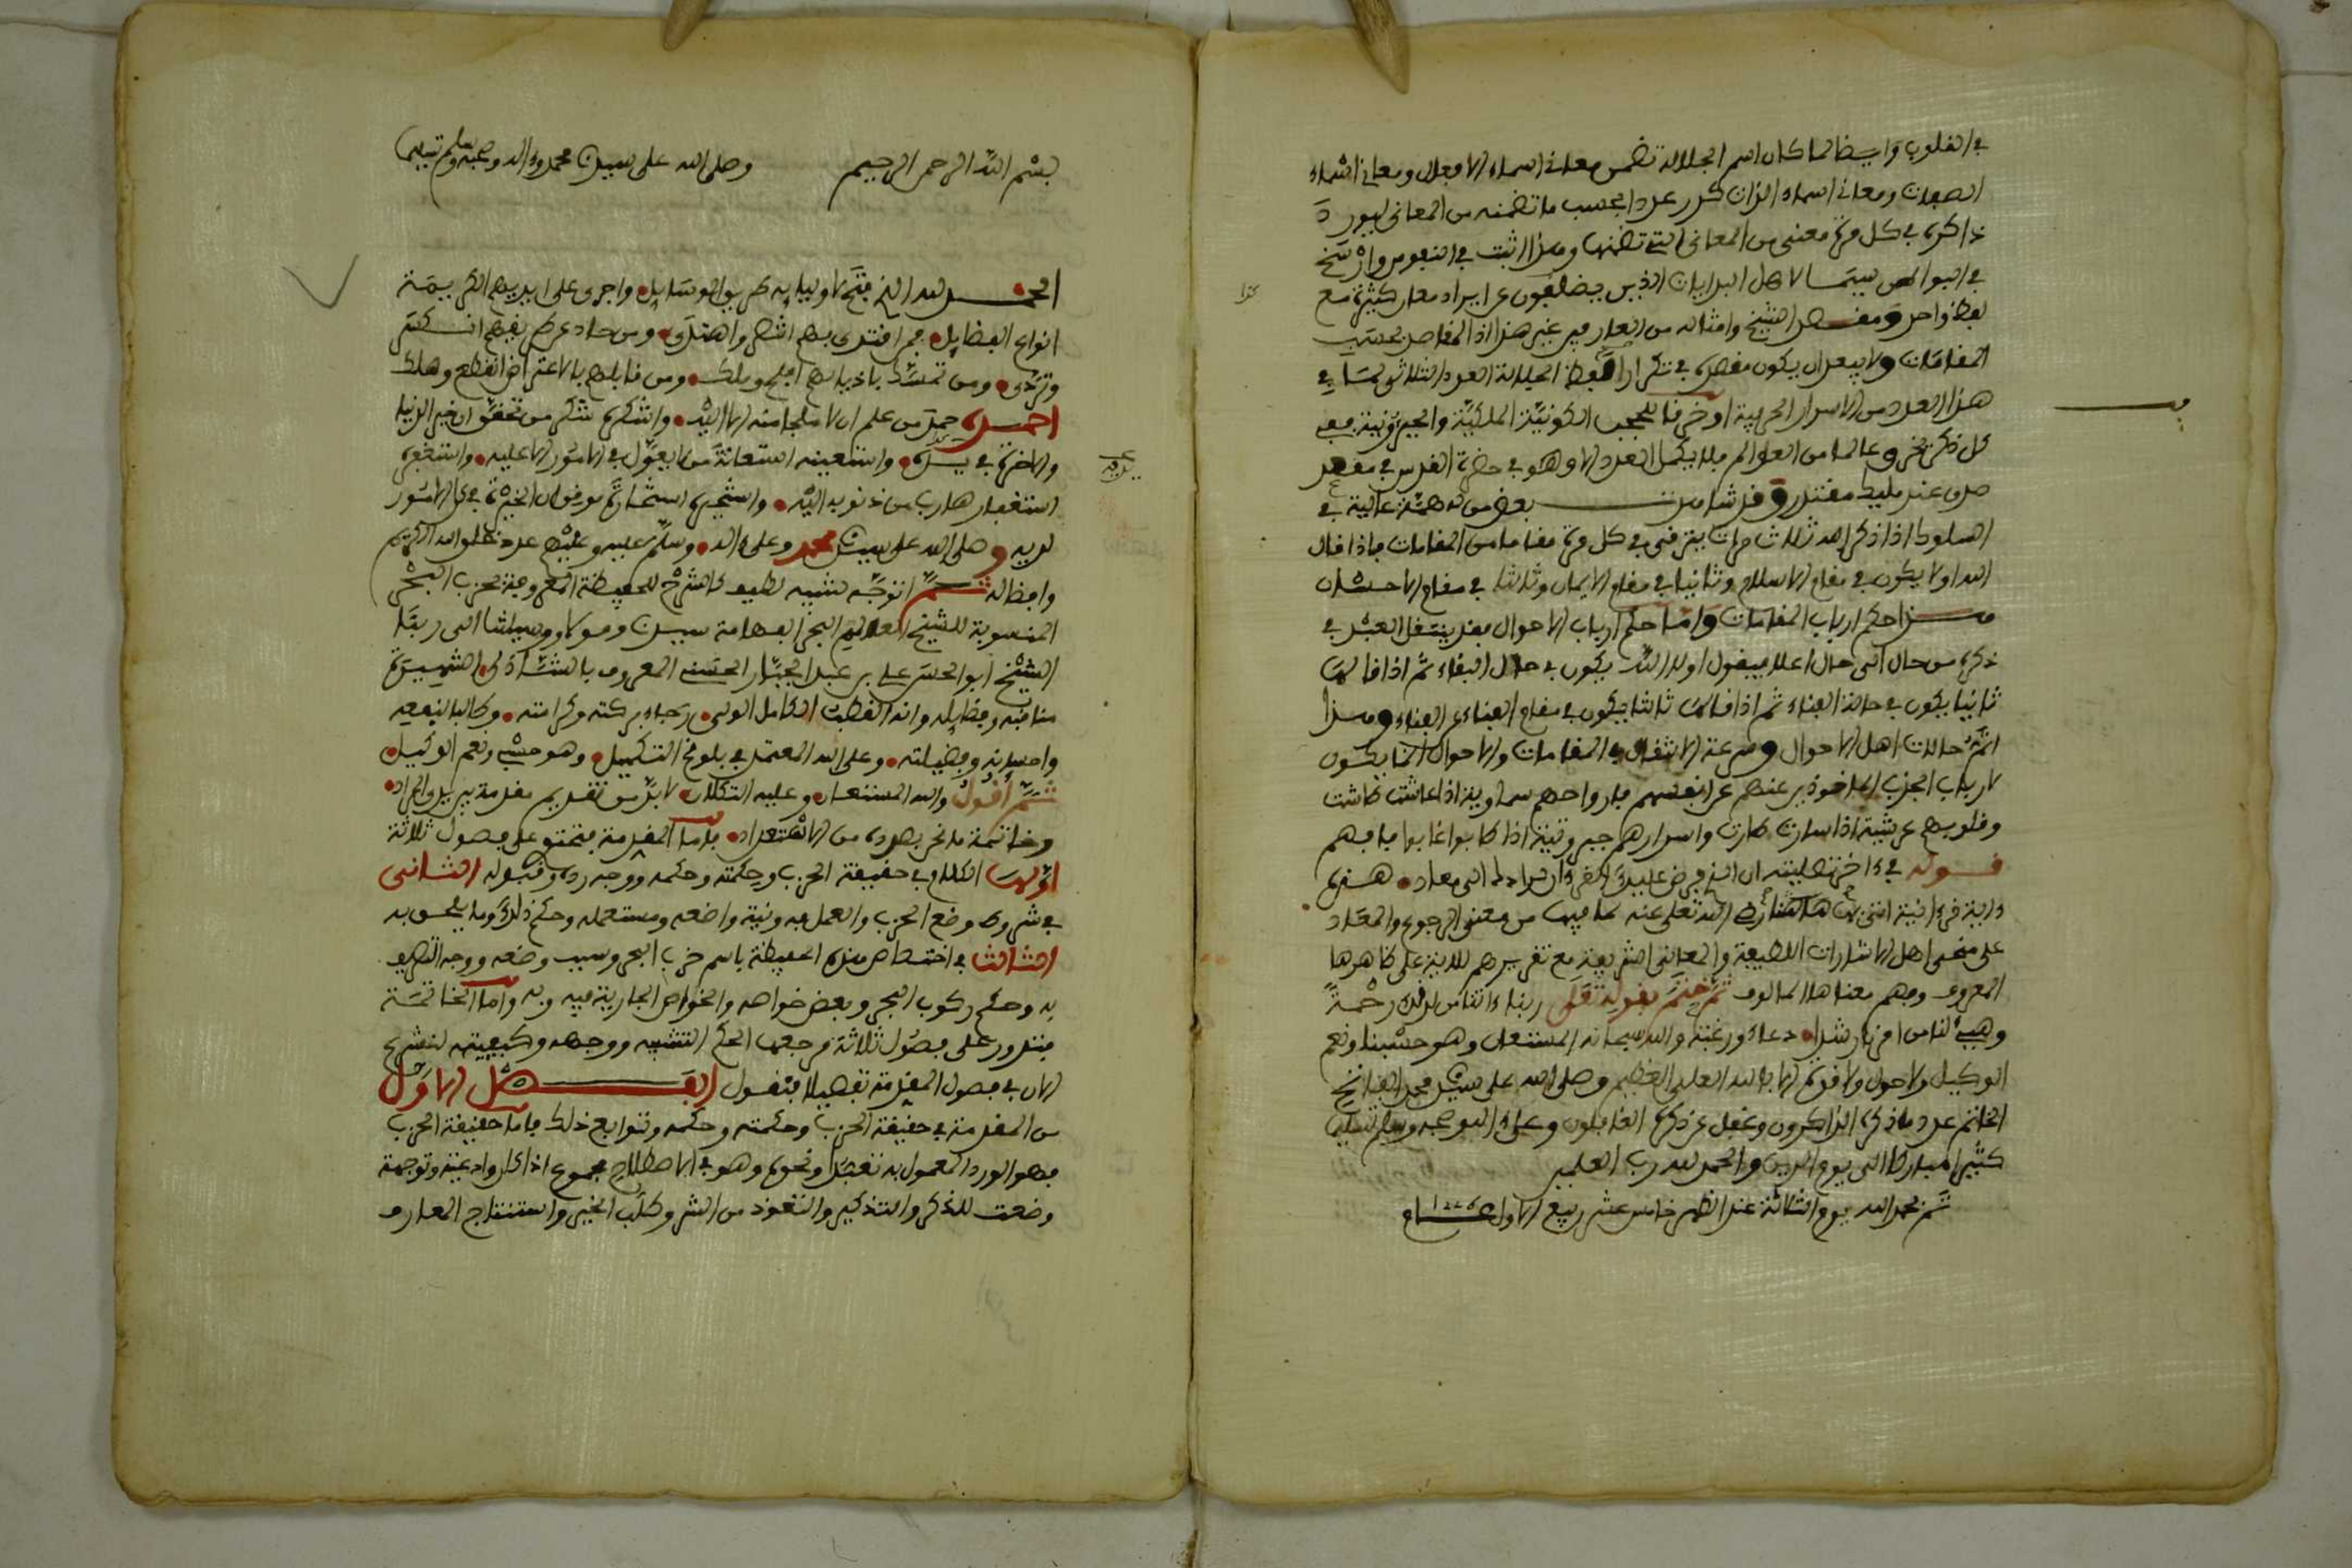 في القلوب وايضا لما كان اسم الجلالة تضمن معاني اسماء الافعال ومعاني اسماء
الصفات ومعاني اسماء الذات كرر عددا بحسب ما تضمنه من المعاني ليورد
ذاكره في كل مرة معنى من المعاني التي تضمنها وهذا اثبت في النفوس وارسخ
في البواطن سيما لاهل البدايات الذين يضعفون عن ايراد معان كثيرة مع
لفظ واحد ومقصد الشيخ وامثاله من العارفين غير هذا اذ المقاصد بحسب
المقامات ولا يبعد ان يكون مقصده في تكرار لفظ الجلالة العدد الثلاثي لما في
هذا العدد من الاسرار الحرفية او خرقا للحجب الكونية الملكية والجبروتية ففي
كل ذكر يخرق عالما من العوالم فلا يكمل العدد الا وهو في حضرة القدس في مقعد
صدق عند مليك مقتدر وقد شاهدت بعض من له همة عالية في
السلوك اذا ذكر الله ثلاث مرات يترقى في كل مرة مقاما من المقامات فاذا قال
الله اولا يكون في مقام الاسلام وثانيا في مقام الايمان وثالثا في مقام الاحسان
هذا حكم ارباب المقامات واما حكم ارباب الاحوال فقد ينتقل العبد في
ذكره من حال الى حال اعلا فيقول اولا الله يكون في حال البقاء ثم اذا قالها
ثانيا يكون في حالة الفناء ثم اذا قالها ثالثا يكون في مقام الفناء عن الفناء وهذا
اتم حالات اهل الاحوال وسرعة الانتقال في المقامات والاحوال انما يكون
لارباب الجذب الماخوذين عنهم عن انفسهم فارواحهم سماوية اذا عاشت طاشت
وقلوبهم عرشية اذا سارت طارت واسرارهم جبروتية اذا كابوا غابوا فافهم
قوله في ءاخر تصليته ان الذي فرض عليك القرءان لرادك الى معاد هذه
ءاية قرءانية اتى بها هاهنا رضي الله تعلى عنه لما فيها من معنى الرجوع والمعاد
على منحى اهل الاشارات اللطيفة والمعاني الشريفة مع تقريرهم للاية على ظاهرها
المعروف وفهم معناها المالوف ثم ختم بقوله تعلى ربنا ءاتنا من لدنك رحمة
وهيء لنا من امرنا رشدا دعاء ورغبة والله سبحانه المستعان وهو حسبنا ونعم
الوكيل ولا حول ولا قوة الا بالله العلي العظيم وصلى الله على سيدنا محمد الفاتح
الخاتم عدد ما ذكره الذاكرون وغفل عن ذكره الغافلون وعلى ءاله وصحبه وسلم تسليما
كثيرا مباركا الى يوم الدين والحمد لله رب العلمين
تم بحمد الله يوم الثلاثة عند الظهر خامس عشر ربيع الاول عام
بسم الله الرحمن الرحيم وصلى الله على سيدنا محمد وءاله وصحبه وسلم تسليما
الحمد لله الذي فتح لاوليايه طريق الوسايل واجرى على ايديهم الكريمة
انواع الفضايل فمن اقتدى بهم انتصر واهتدى ومن حاد عن طريقهم انتكس
وتردى ومن تمسك باذيالهم افلح وملك ومن قابلهم بالاعتراض انقطع وهلك
احمده حمد من علم ان لا ملجا منه الا اليه واشكره شكر من تحقق ان خير الدنيا
والاخرة في يديه واستعينه استعانة من لا يعول في الامور الا عليه واستغفره
استغفار هارب من ذنوبه اليه واستخيره استخارة موقن ان الخيرة في كل الامور
لديه وصلى الله على سيدنا محمد وعلى ءاله وسلم عليه وعليهم عدد خلق الله الكريم
وافضاله ثم اتوجه لتنبيه لطيف كالشرح للحفيظة المعروفة بحزب البحر
المنسوبة للشيخ العالم البحر الفهامة سيدنا ومولانا ووسيلتنا الى ربنا
الشيخ ابو الحسن علي بن عبد الجبار الحسني المعروف بالشاذلي الشهيرة
مناقبه وفضايله وانه القطب الكامل الولي رجاء بركته وكرامته وطالبا لنفعه
واحسانه وفضيلته وعلى الله المعتمد في بلوغ التكميل وهو حسبي ونعم الوكيل
ثم اقول والله المستعان وعليه التكلان لابد من تقديم مقدمة بين يدي المراد
وخاتمة ما نحن بصدده من الاستعداد فاما المقدمة فتحتوي على فصول ثلاثة
اولها الكلام في حقيقة الحزب وحكمته وحكمه ووجه رده وقبوله الثاني
في شروط وضع الحزب والعمل به ونية واضعه ومستعمله وحكم ذلك وما يلحق به
الثالث في اختصاص هذه الحفيظة باسم حزب البحر وسبب وضعه ووجه التصريف
به وحكم ركوب البحر وبعض خواصه والخواص الجارية فيه وبه واما الخاتمة
فتدور على فصول ثلاثة مرجعها الحكم التنبيه ووجهه وكيفيته لنشرع
الان في فصول المقدمة تفصيلا فنقول الفصل الاول
من المقدمة في حقيقة الحزب وحكمته وحكمه وتوابع ذلك فاما حقيقة الحزب
فهو الورد المعمول به تعبدا ونحوه وهو في الاصطلاح مجموع اذكار وادعية وتوجهة
وضعت للذكر والتذكير والتعوذ من الشر وطلب الخير واستنتاج المعارف